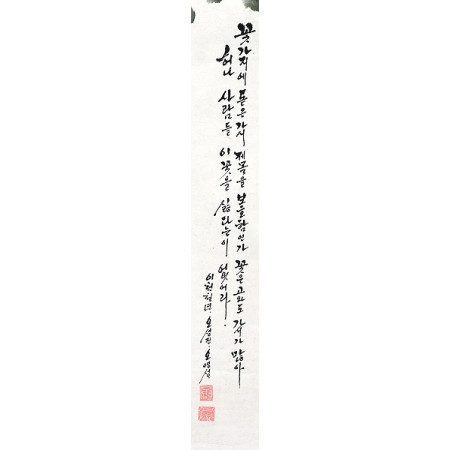 꽃가지에 돋은 가시 제몸을 보호함인가 꽃은 고와도 가시가 많아
허나 사람들 이 꽃을 싫다는 이 없어라.